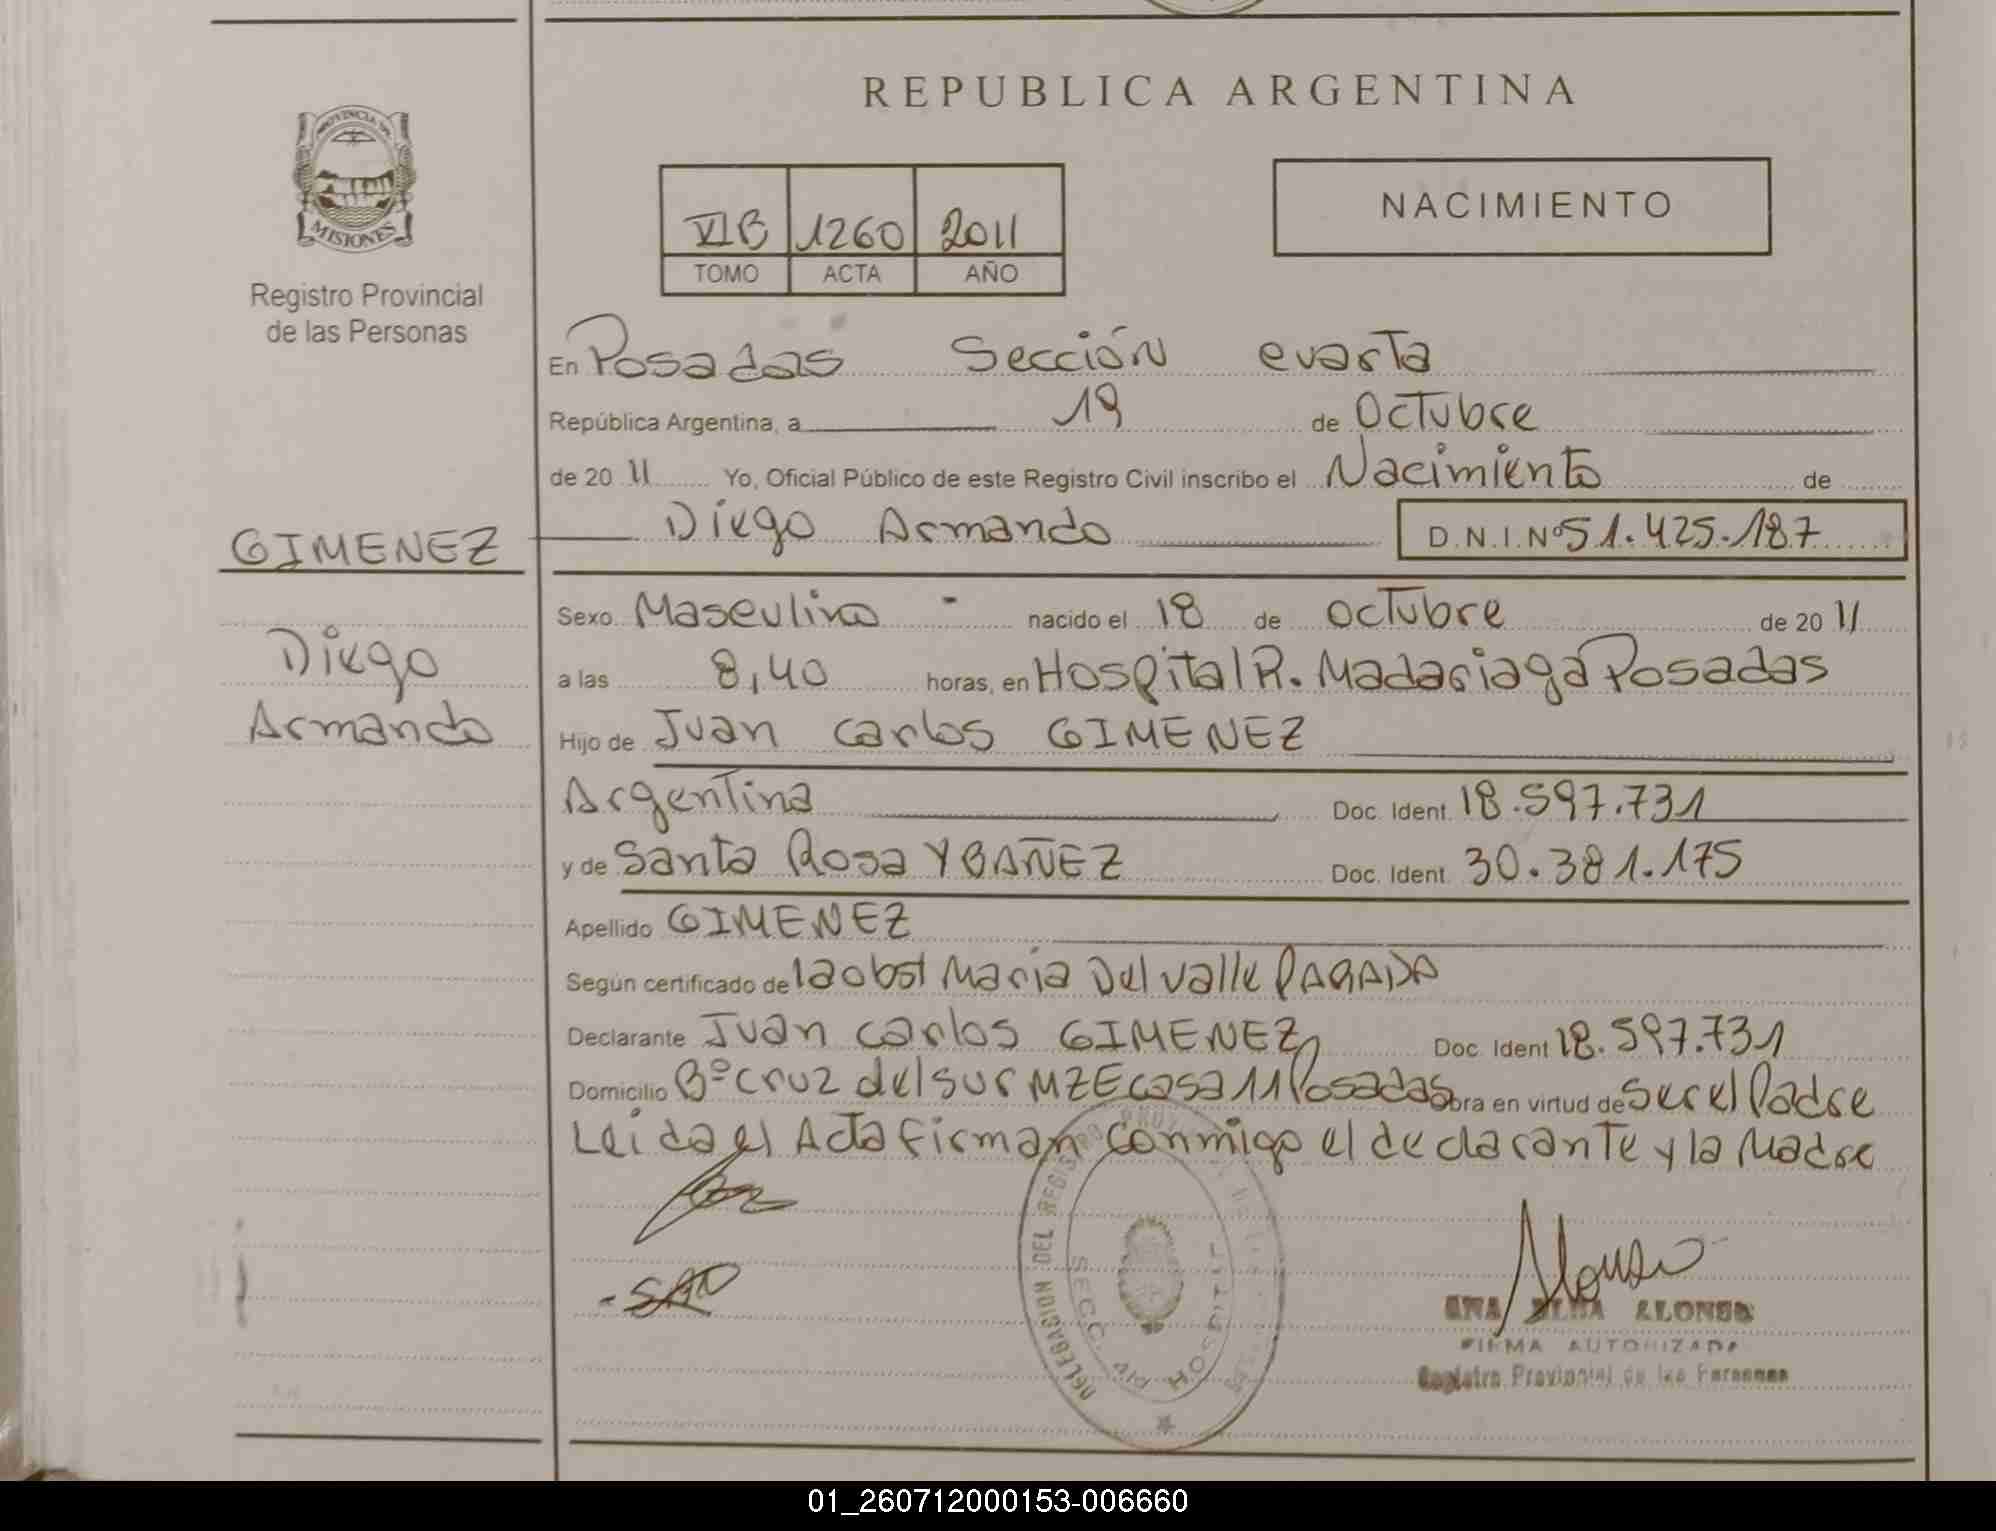 REPUBLICA ARGENTINA
PROVINCIA DE
MISIONES
Registro Provincial
de las Personas
VIB 1260 2011
TOMO ACTA AÑO
NACIMIENTO
En Posadas Sección cuarta
República Argentina, a 19 de Octubre
de 2011 Yo, Oficial Público de este Registro Civil inscribo el Nacimiento de
Diego Armando D.N.I. Nº 51.425.187
GIMENEZ
Diego
Armando
Sexo Masculino - nacido el 18 de octubre de 2011
a las 8,40 horas, en Hospital R. Madariaga Posadas
Hijo de Juan Carlos GIMENEZ
Argentina Doc. Ident. 18.597.731
y de Santa Rosa YBAÑEZ Doc. Ident. 30.381.175
Apellido GIMENEZ
Según certificado de la obst Maria Del Valle PARADA
Declarante Juan Carlos GIMENEZ Doc. Ident 18.597.731
Domicilio Bº Cruz del sur MZ E casa 11 Posadas Obra en virtud de Ser el Padre
Leida el Acta firman conmigo el declarante y la Madre
DELEGACION DEL REGISTRO
SECC. 4ta HOSPITAL
Alonso
ANA ELBA ALONSO
FIRMA AUTORIZADA
Registro Provincial de las Personas
01_260712000153-006660